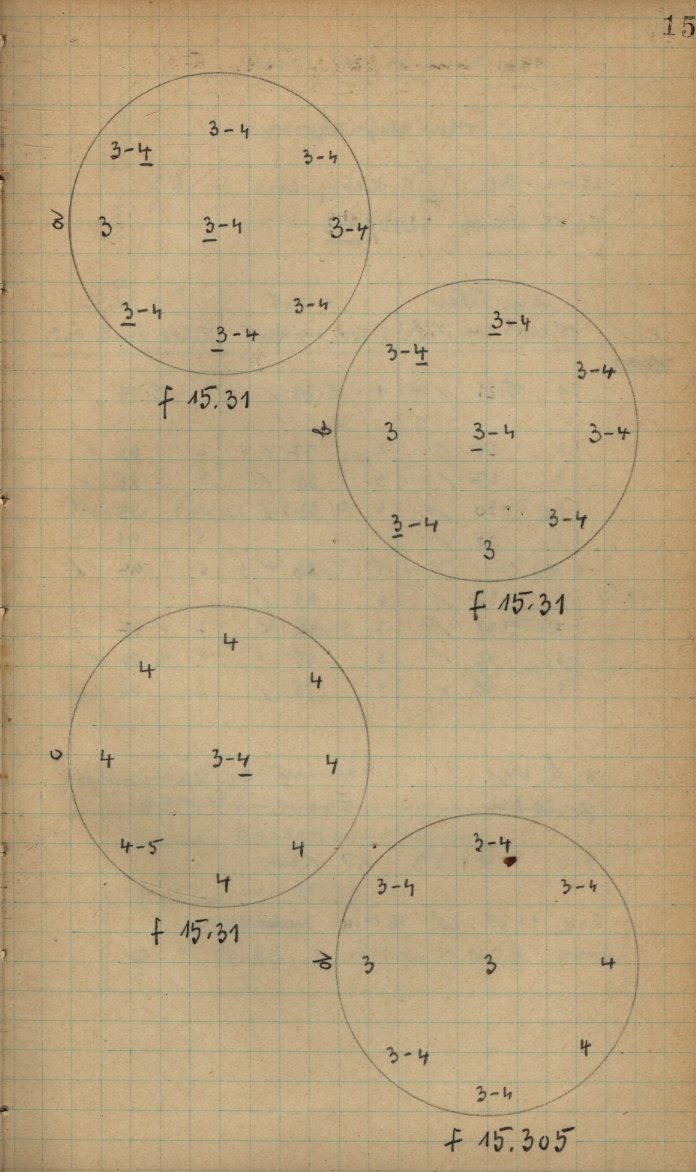 15
3-4
3-4
3-4
a
3
3-4
3-4
3-4
3-4
3-4
f 15.31
3-4
3-4
3-4
b
3
3-4
3-4
3-4
3-4
3
f 15.31
4
4
4
c
4
3-4
4
4-5
4
4
f 15.31
3-4
3-4
3-4
d
3
3
4
3-4
4
3-4
f 15.305